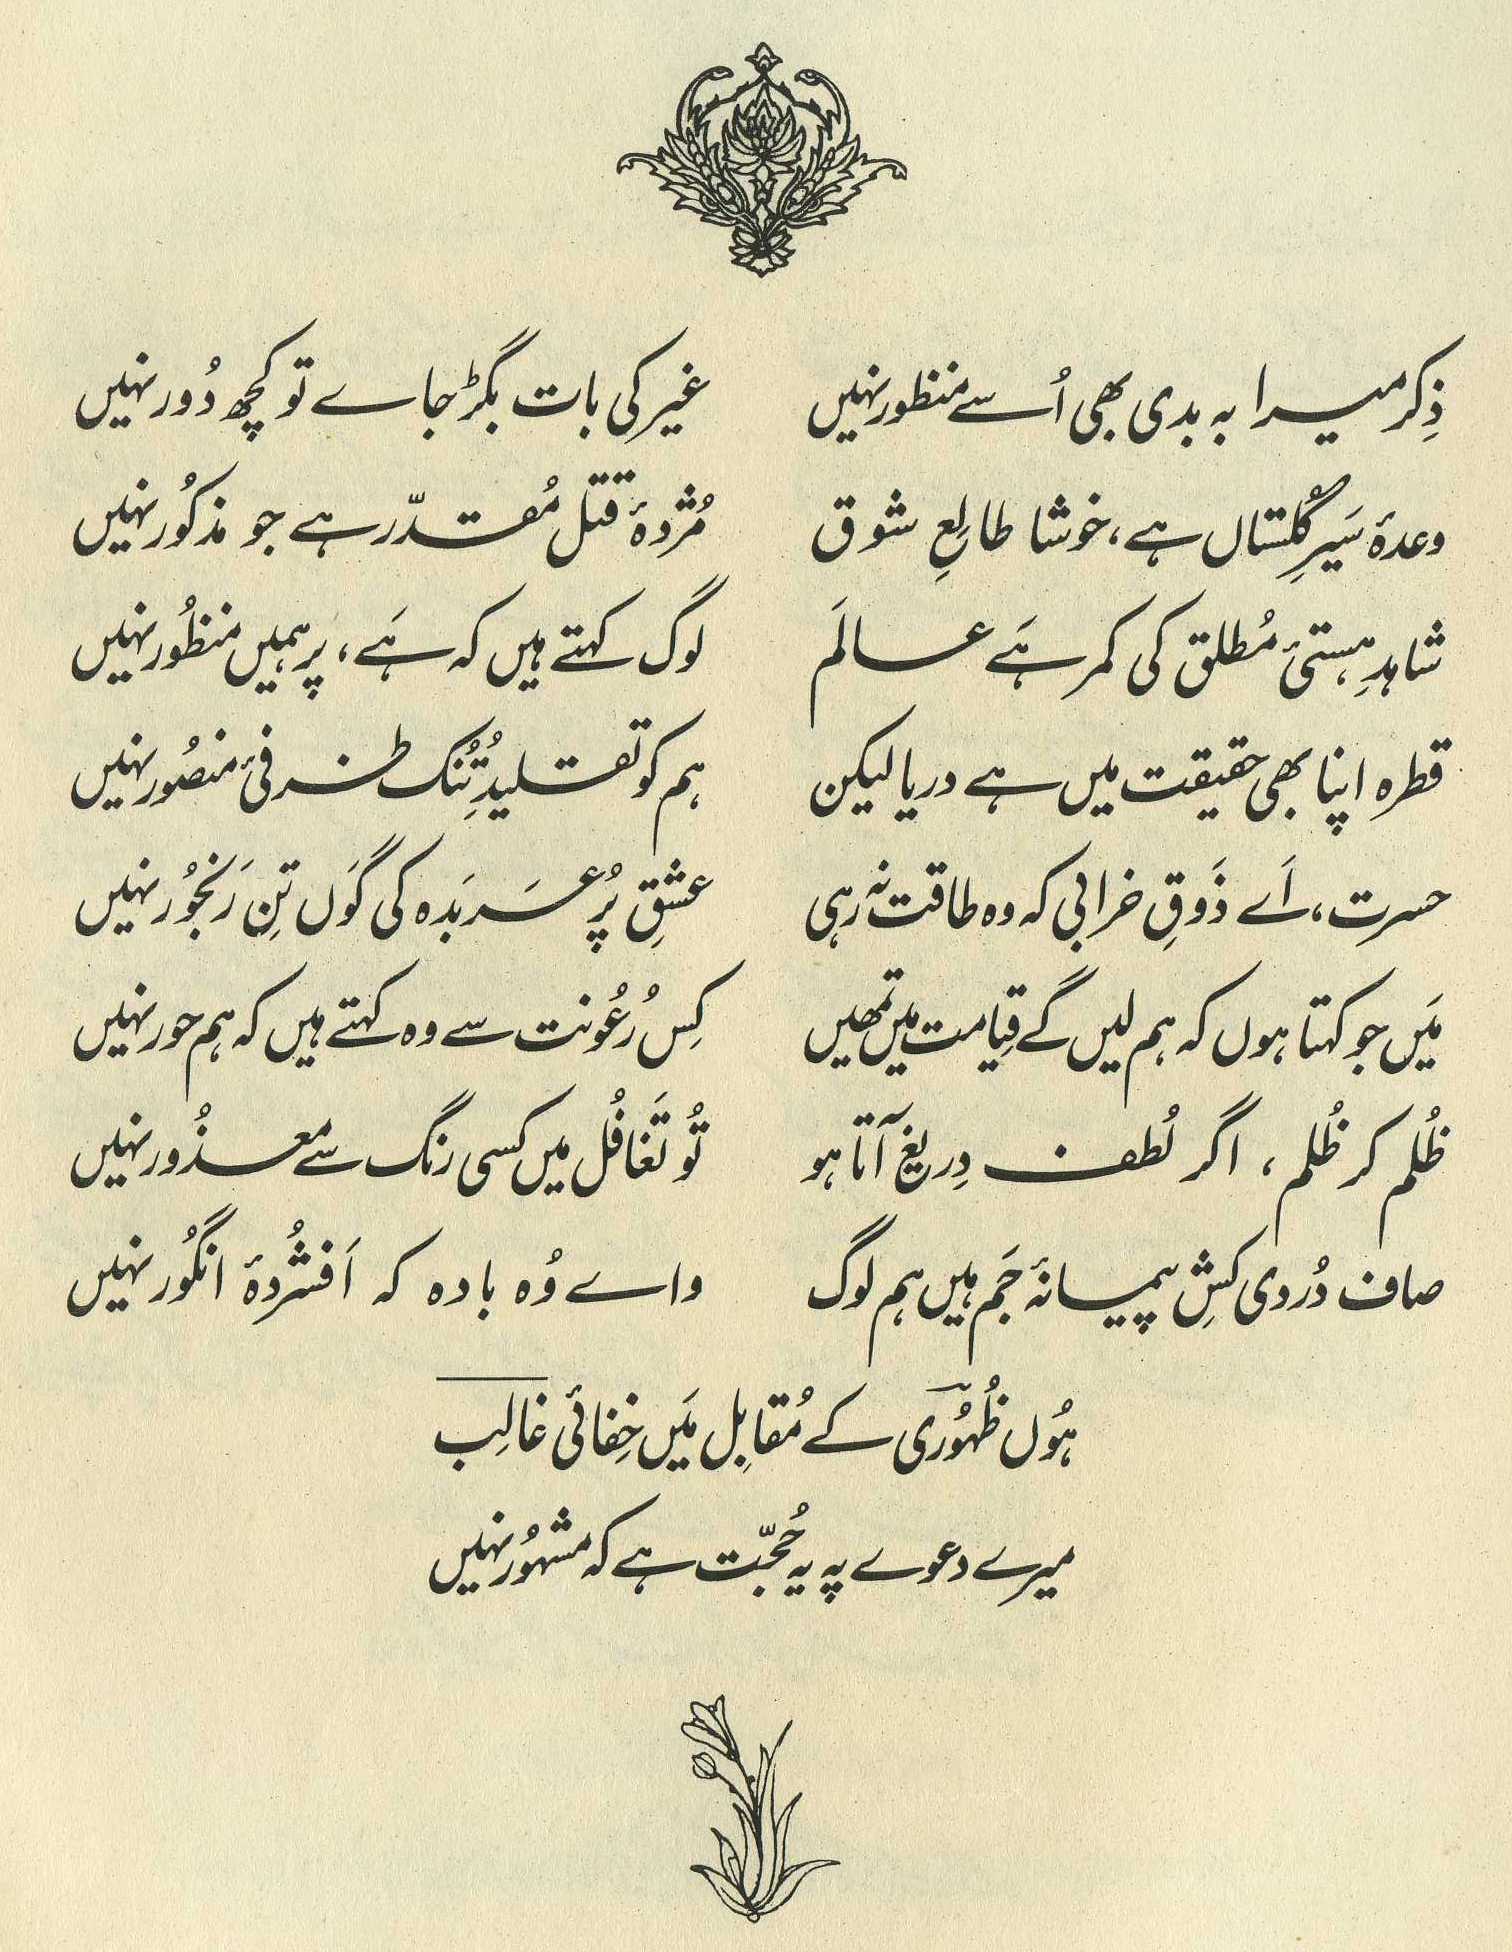 ذِکر میرا بہ بدی بھی اُسے منظور نہیں غیر کی بات بگڑ جاے تو کچھ دُور نہیں
وعدۂ سَیرِ گُلستاں ہے، خوشا طالعِ شوق مُژدۂ قتل مُقدّر ہے جو مذکُور نہیں
شاہدِ ہستیٔ مُطلق کی کمر ہَے عالَم لوگ کہتے ہیں کہ ہَے، پر ہمیں منظُور نہیں
قطرہ اپنا بھی حقیقت میں ہے دریا لیکن ہم کو تقلیدِ تُنُک ظرفیٔ منصُور نہیں
حسرت، اَے ذَوقِ خرابی کہ وہ طاقت نہ رہی عشقِ پُر عَربَدہ کی گَوں تنِ رَنجُور نہیں
مَیں جو کہتا ہوں کہ ہم لیں گے قِیامت میں تمھیں کِس رُعُونت سے وہ کہتے ہیں کہ ہم حور نہیں
ظُلم کر ظُلم، اگر لُطف دِریغ آتا ہو تُو تَغافُل میں کسی رنگ سے معذُور نہیں
صاف دُردی کشِ پیمانۂ جَم ہیں ہم لوگ واے وُہ بادہ کہ اَفشُردۂ انگُور نہیں
ہُوں ظُہُورؔی کے مُقابِل مَیں خِفائی غالِب
میرے دعوے پہ یہ حُجّت ہے کہ مشہُور نہیں